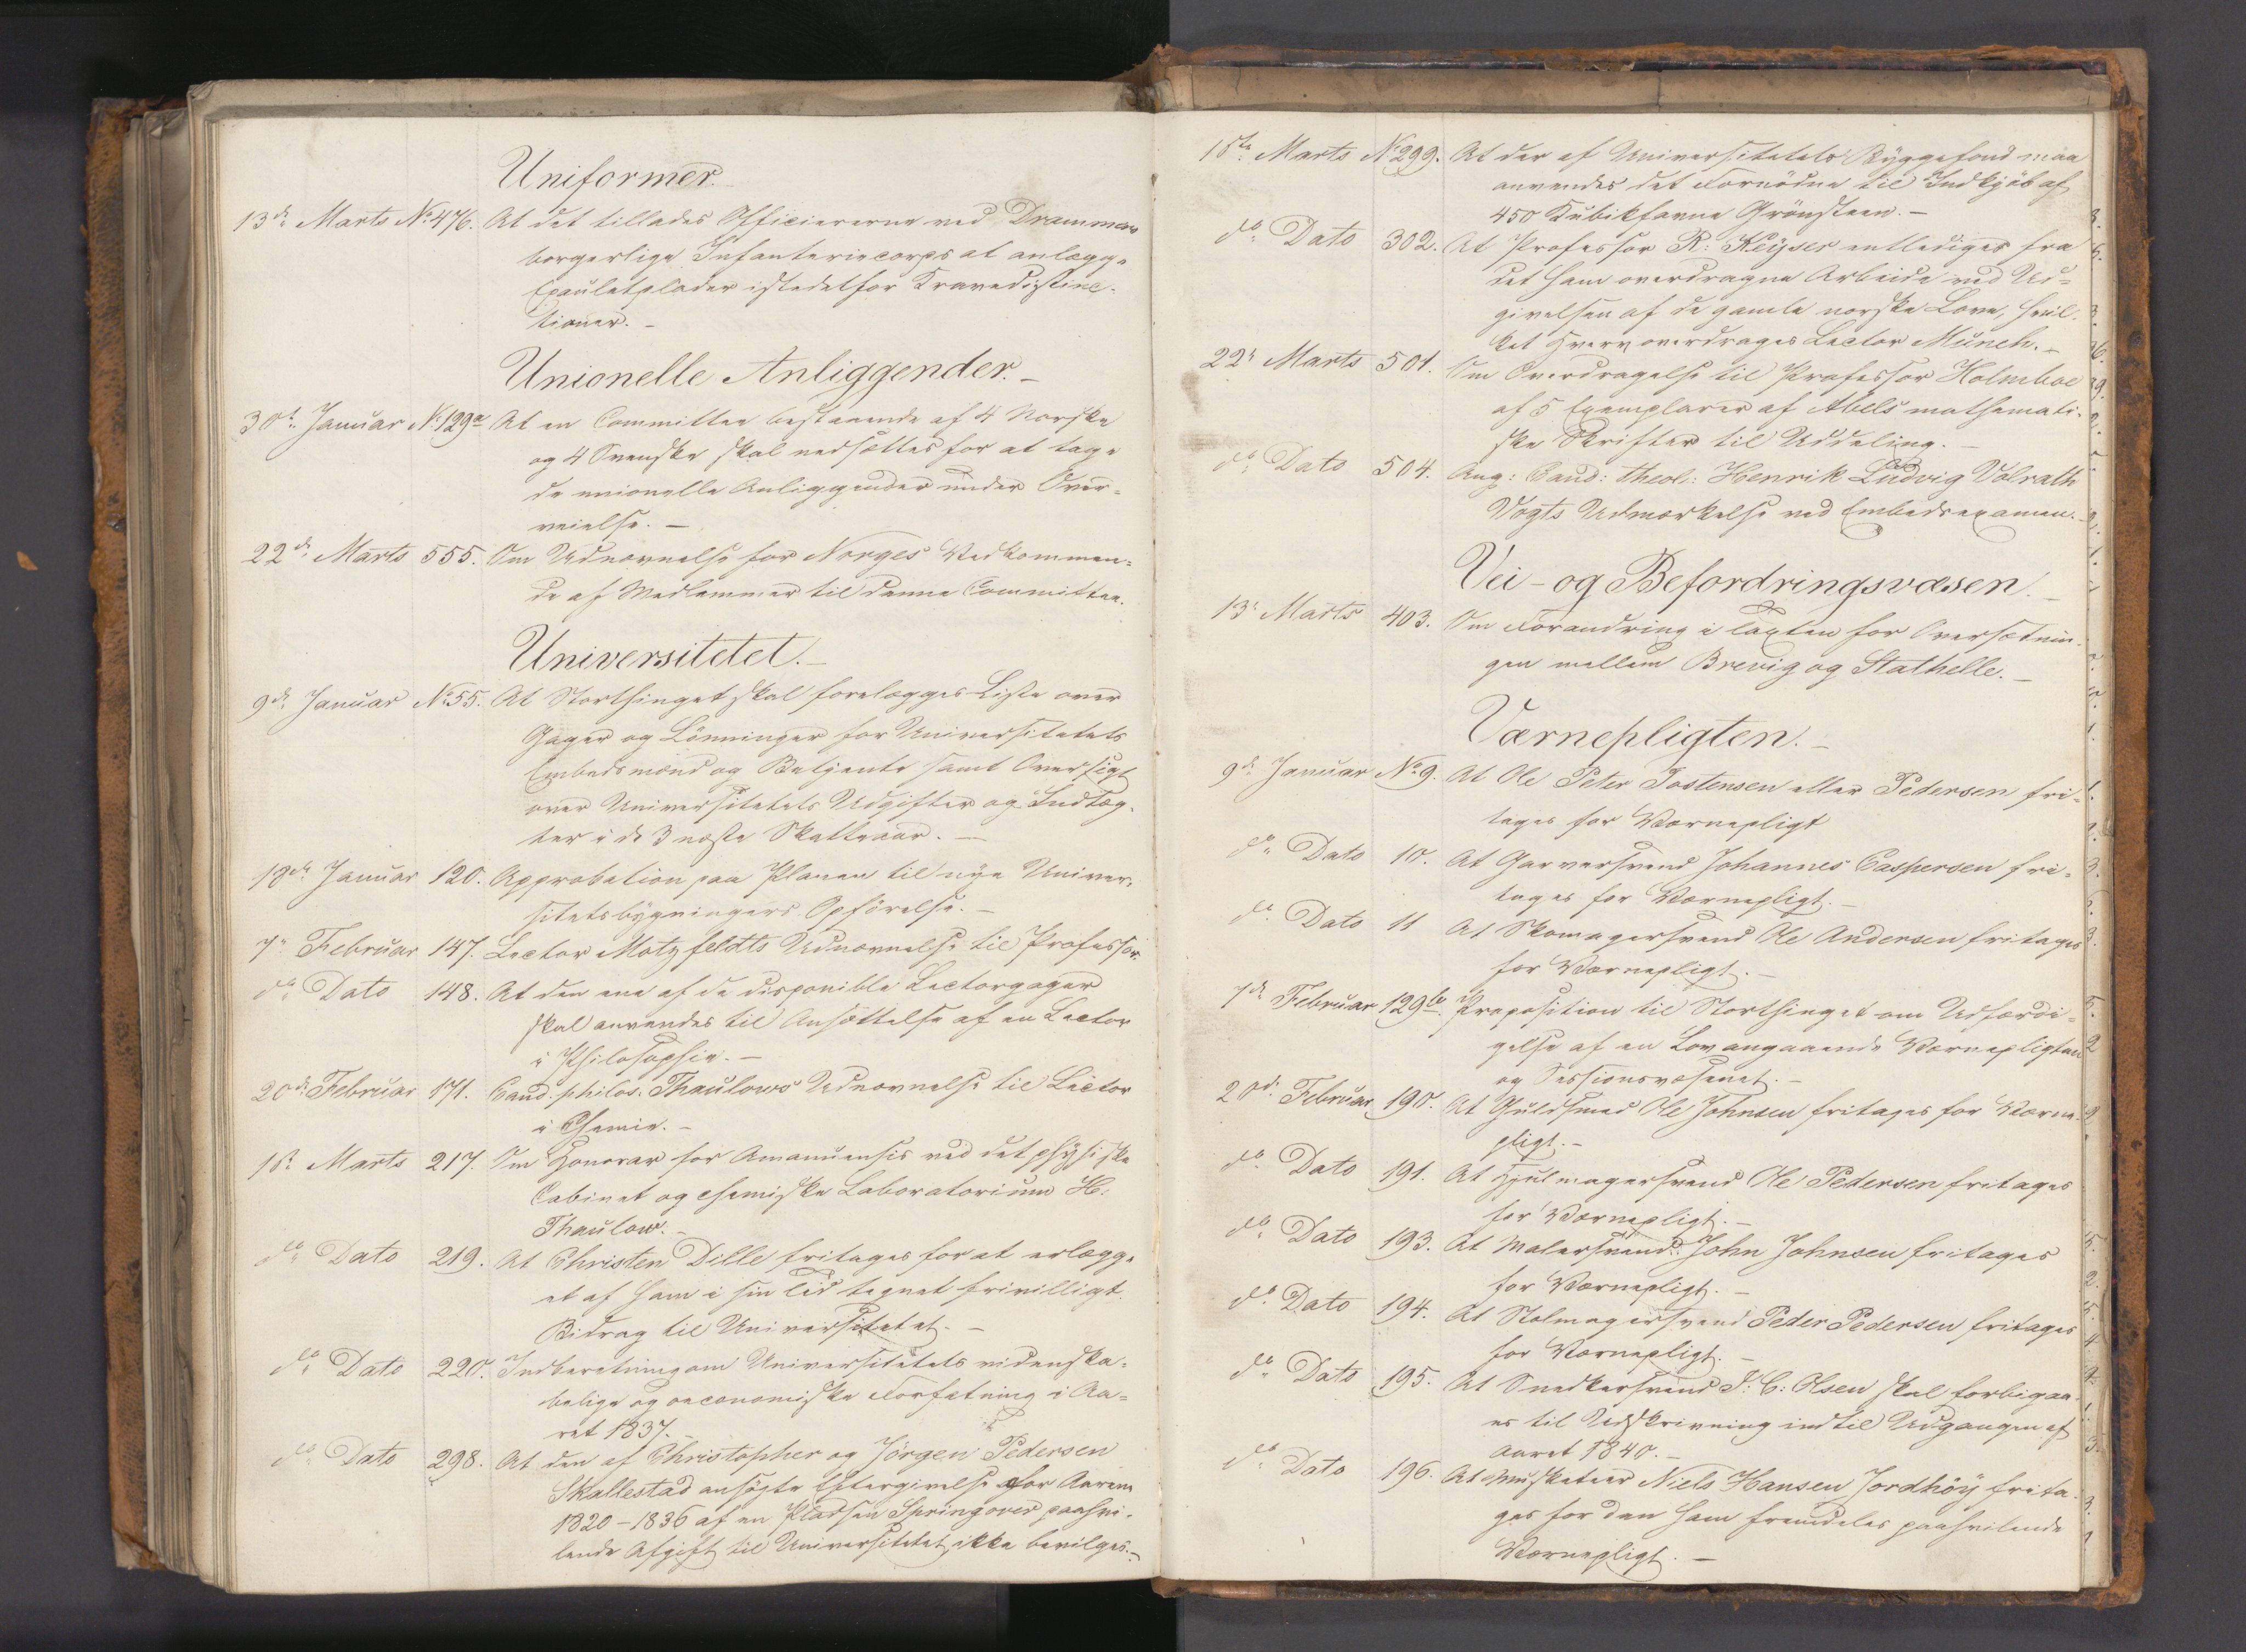 Uniformer.
13de Marts No 476. At det tillades Officiererne ved Drammens
borgerlige Infanteriecorps at anlægge
Epauletplader istedetfor Kravedistinc-
tioner. –
Unionelle Anliggender. –
30te Januar No 129a At en Committee bestaaende af 4 Norske
og 4 Svenske skal nedsættes for at tage
de unionelle Anliggender under Over-
veielse. –
22de Marts 555. Om Udnævnelse for Norges Vedkommen-
de af Medlemmer til denne Committee.
Universitetet. –
9de Januar No 55. At Storthinget skal forelægges Liste over
Gager og Lönninger for Universitetets
Embedsmænd og Betjente samt Oversigt
over Universitetets Udgifter og Indtæg-
ter i de 3 næste Skatteaar. –
18de Januar 120. Approbation paa Planen til nye Univer-
sitetsbygningers Opförelse. –
7de Februar 147. Lector Motzfeldts Udnævnelse til Professor.
do Dato 148. At den ene af de disponible Lectorgager
skal anvendes til Ansættelse af en Lector
i Philosophie. –
20de Februar 171. Cand. philos. Thaulows Udnævnelse til Lector
i Chemie. –
1ste Marts 217. Om Honorar for Amanuensis ved det physiske
Cabinet og chemiske Laboratorium H.
Thaulow. –
do Dato 219. At Christen Dille fritages for at erlægge
et af ham i sin Tid tegnet frivilligt
Bidrag til Universitetet. –
do Dato 220. Indberetning om Universitetets videnska-
belige og oeconomiske Forfatning i Aa-
ret 1837. –
do Dato 298. At den af Christopher og Jörgen Pedersen
Skallestad ansögte Eftergivelse for Aarene
1820–1836 af en Pladsen Springover paahvi-
lende Afgift til Universitetet, ikke bevilges. –
1ste Marts No 299. At der af Universitetets Byggefond maa
anvendes det Fornödne til Indkjöb af
450 Kubikfavne Grönsteen. –
do Dato 302. At Professor R: Keyser entlediges fra
det ham overdragne Arbeide ved Ud-
givelsen af de gamle norske Love, hvil-
ket Hverv overdrages Lector Münch. –
22de Marts 501. Om Overdragelse til Professor Holmboe
af 5 Exemplarer af Abels mathemati-
ske Skrifter til Uddeling. –
do Dato 504. Ang: Cand: theol: Henrik Ludvig Volrath
Vogts Udmærkelse ved Embedsexamen. –
Vei- og Befordringsvæsen. –
13de Marts 403. Om Forandring i Taxten for Oversætnin-
gen mellem Brevig og Stathelle. –
Værnepligten. –
9de Januar No 9. At Ole Peter Tostensen eller Pedersen fri-
tages for Værnepligt
do Dato 10. At Garversvend Johannes Caspersen fri-
tages for Værnepligt. –
do Dato 11 At Skomagersvend Ole Andersen fritages
for Værnepligt. –
7de Februar 129b. Proposition til Storthinget om Udfærdi-
gelse af en Lov angaaende Værnepligten
og Sessionsvæsenet. –
20de Februar 190. At Guldsmed Ole Johnsen fritages for Værne-
pligt. –
do Dato 191. At Hjulmagersvend Ole Pedersen fritages
for Værnepligt. –
do Dato 193. At Malersvend John Johnsen fritages
for Værnepligt. –
do Dato 194. At Stolmagersvend Peder Pedersen fritages
for Værnepligt. –
do Dato 195. At Snedkersvend J: C: Olsen skal forbigaa-
es til Udskrivning indtil Udgangen af
Aaret 1840. –
do Dato 196. At Musketeer Niels Hansen Jordhöy frita-
ges for den ham fremdeles paahvilende
Værnepligt. –